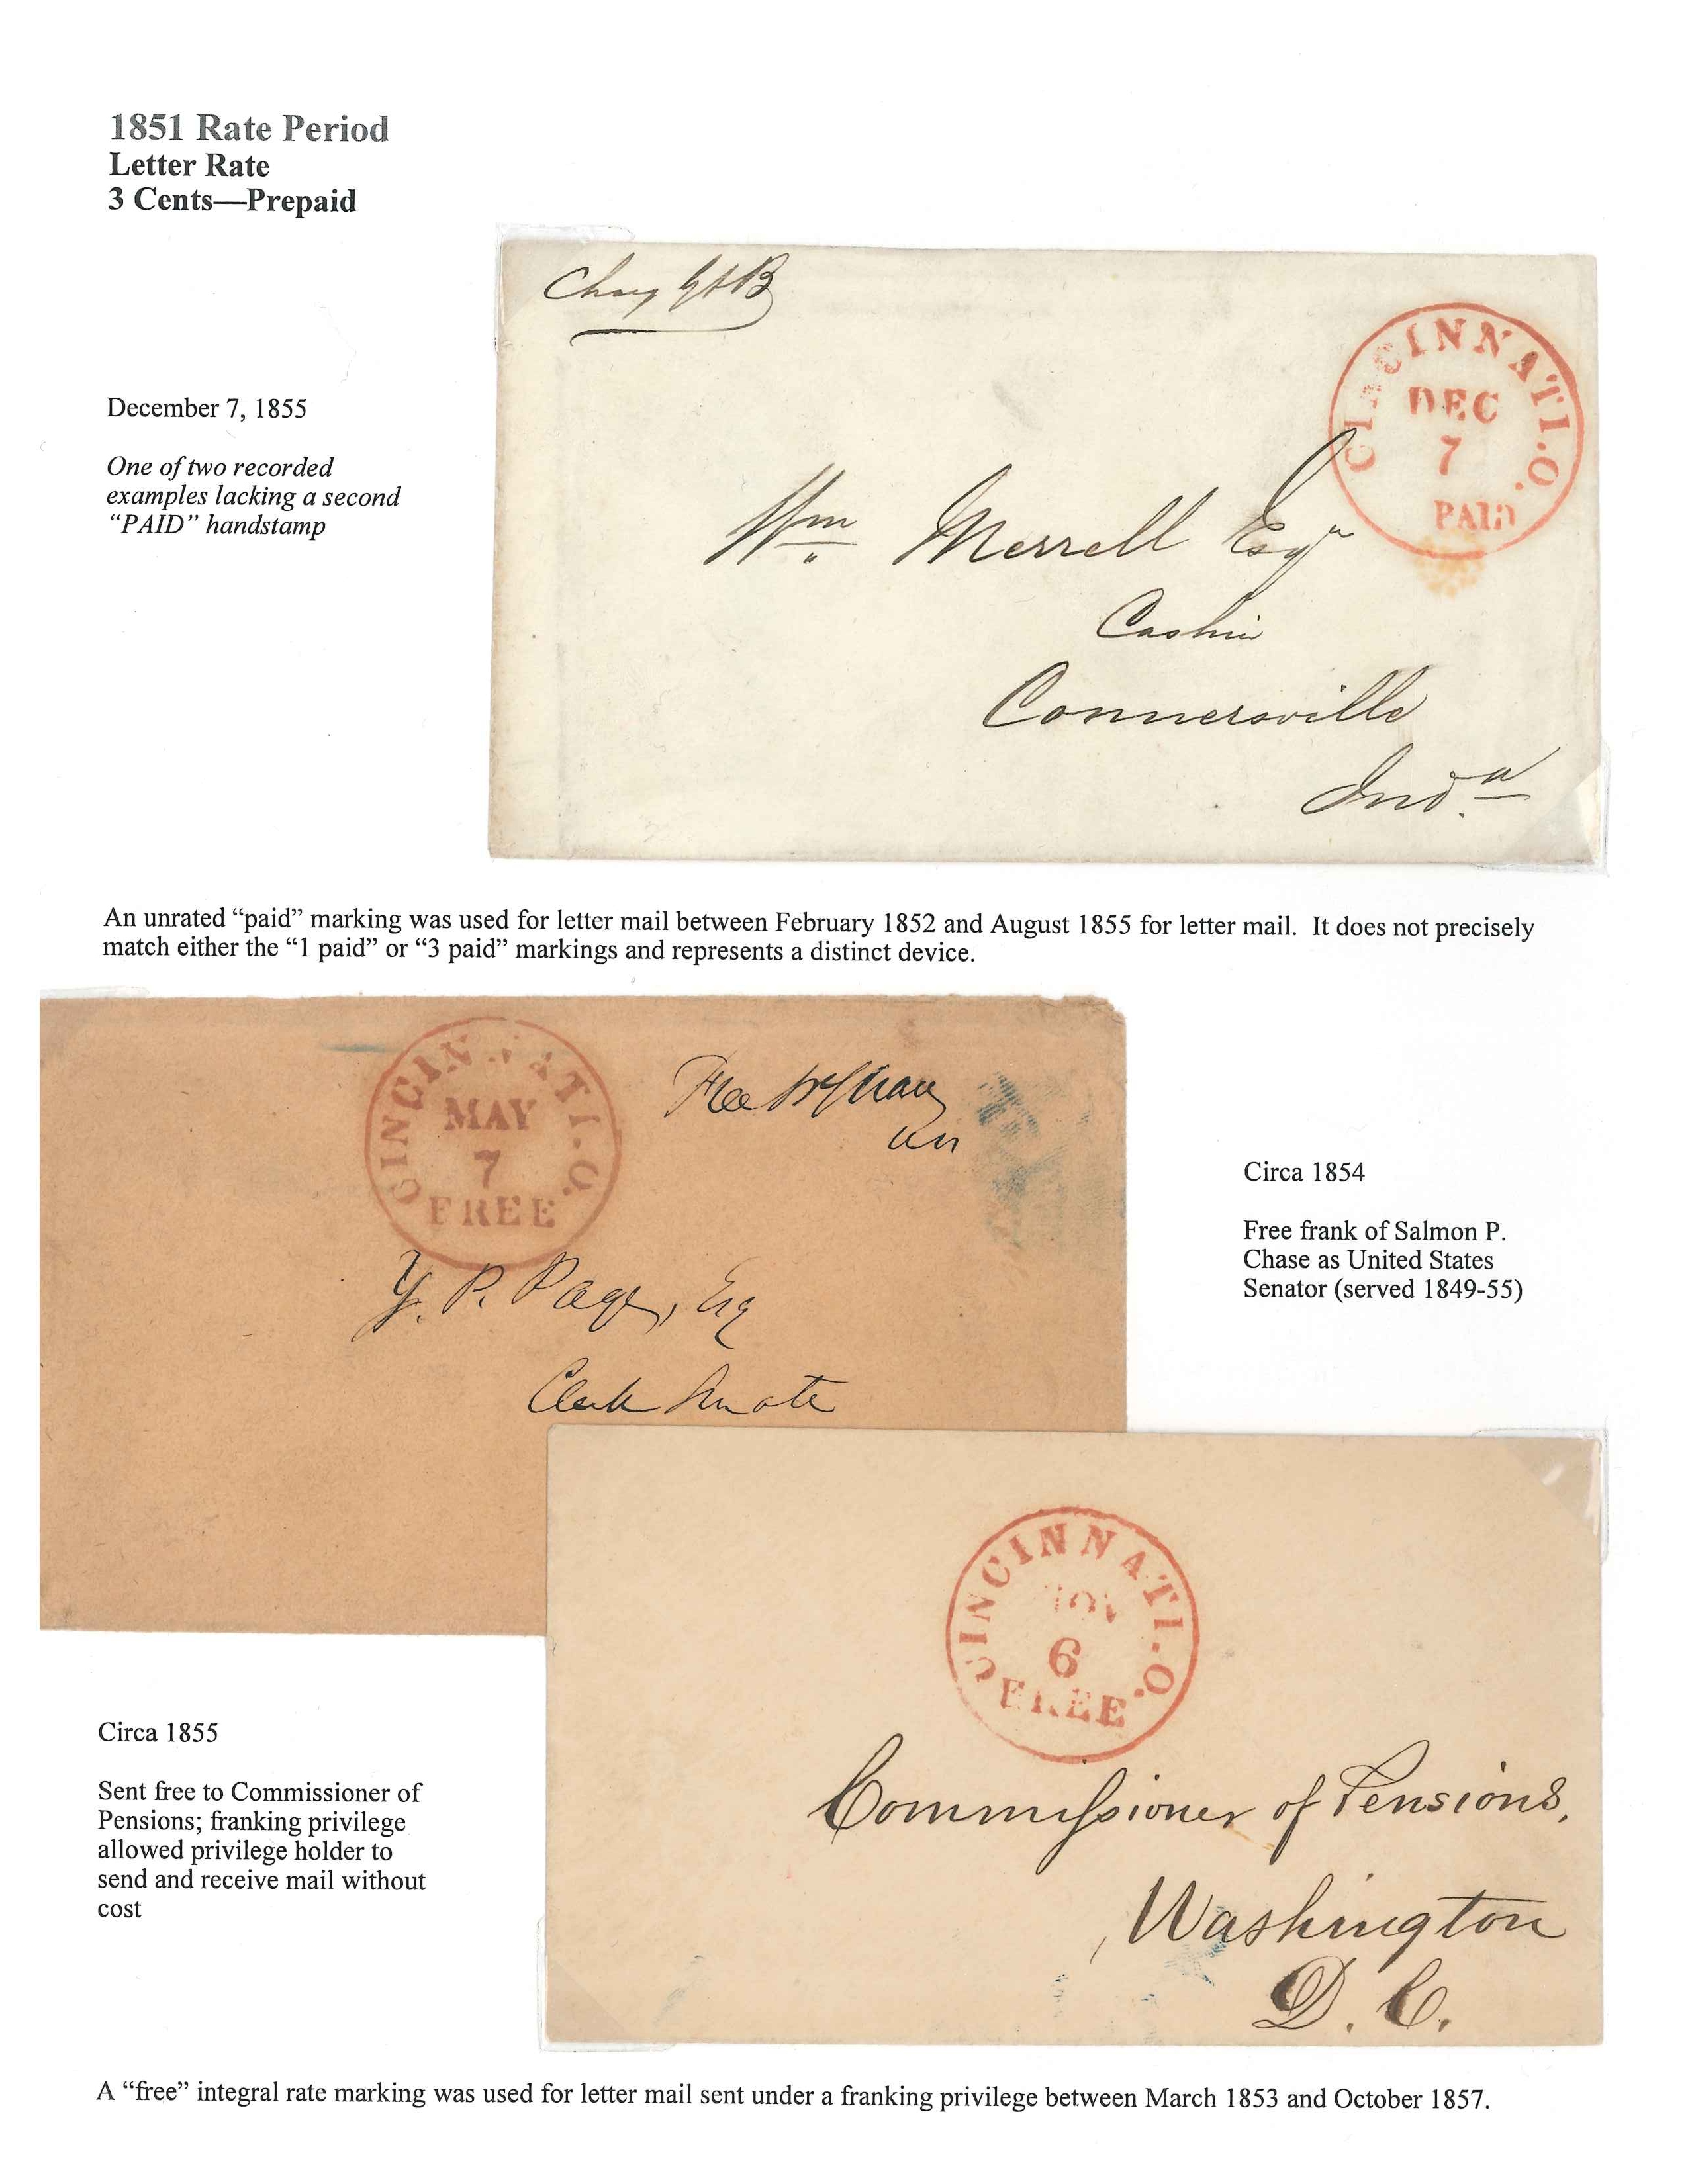 1851 Rate Period
Letter Rate
3 Cents—Prepaid
Chary G&B
CINCINNATI.O.
DEC
7
PAID
December 7, 1855
One of two recorded
examples lacking a second
“PAID” handstamp
Wm Merrell Esqr
Cashier
Connersville
Inda
An unrated “paid” marking was used for letter mail between February 1852 and August 1855 for letter mail. It does not precisely
match either the “1 paid” or “3 paid” markings and represents a distinct device.
CINCINNATI.O.
MAY
7
FREE
Free
Y. P. Page, Esq
Clerk Senate
Circa 1854
Free frank of Salmon P.
Chase as United States
Senator (served 1849-55)
CINCINNATI.O.
NOV
6
FREE
Commissioner of Pensions,
Washington
D. C.
Circa 1855
Sent free to Commissioner of
Pensions; franking privilege
allowed privilege holder to
send and receive mail without
cost
A “free” integral rate marking was used for letter mail sent under a franking privilege between March 1853 and October 1857.